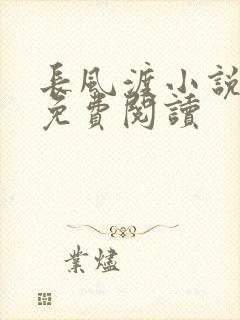 長風渡小說
免費閱讀
業燼